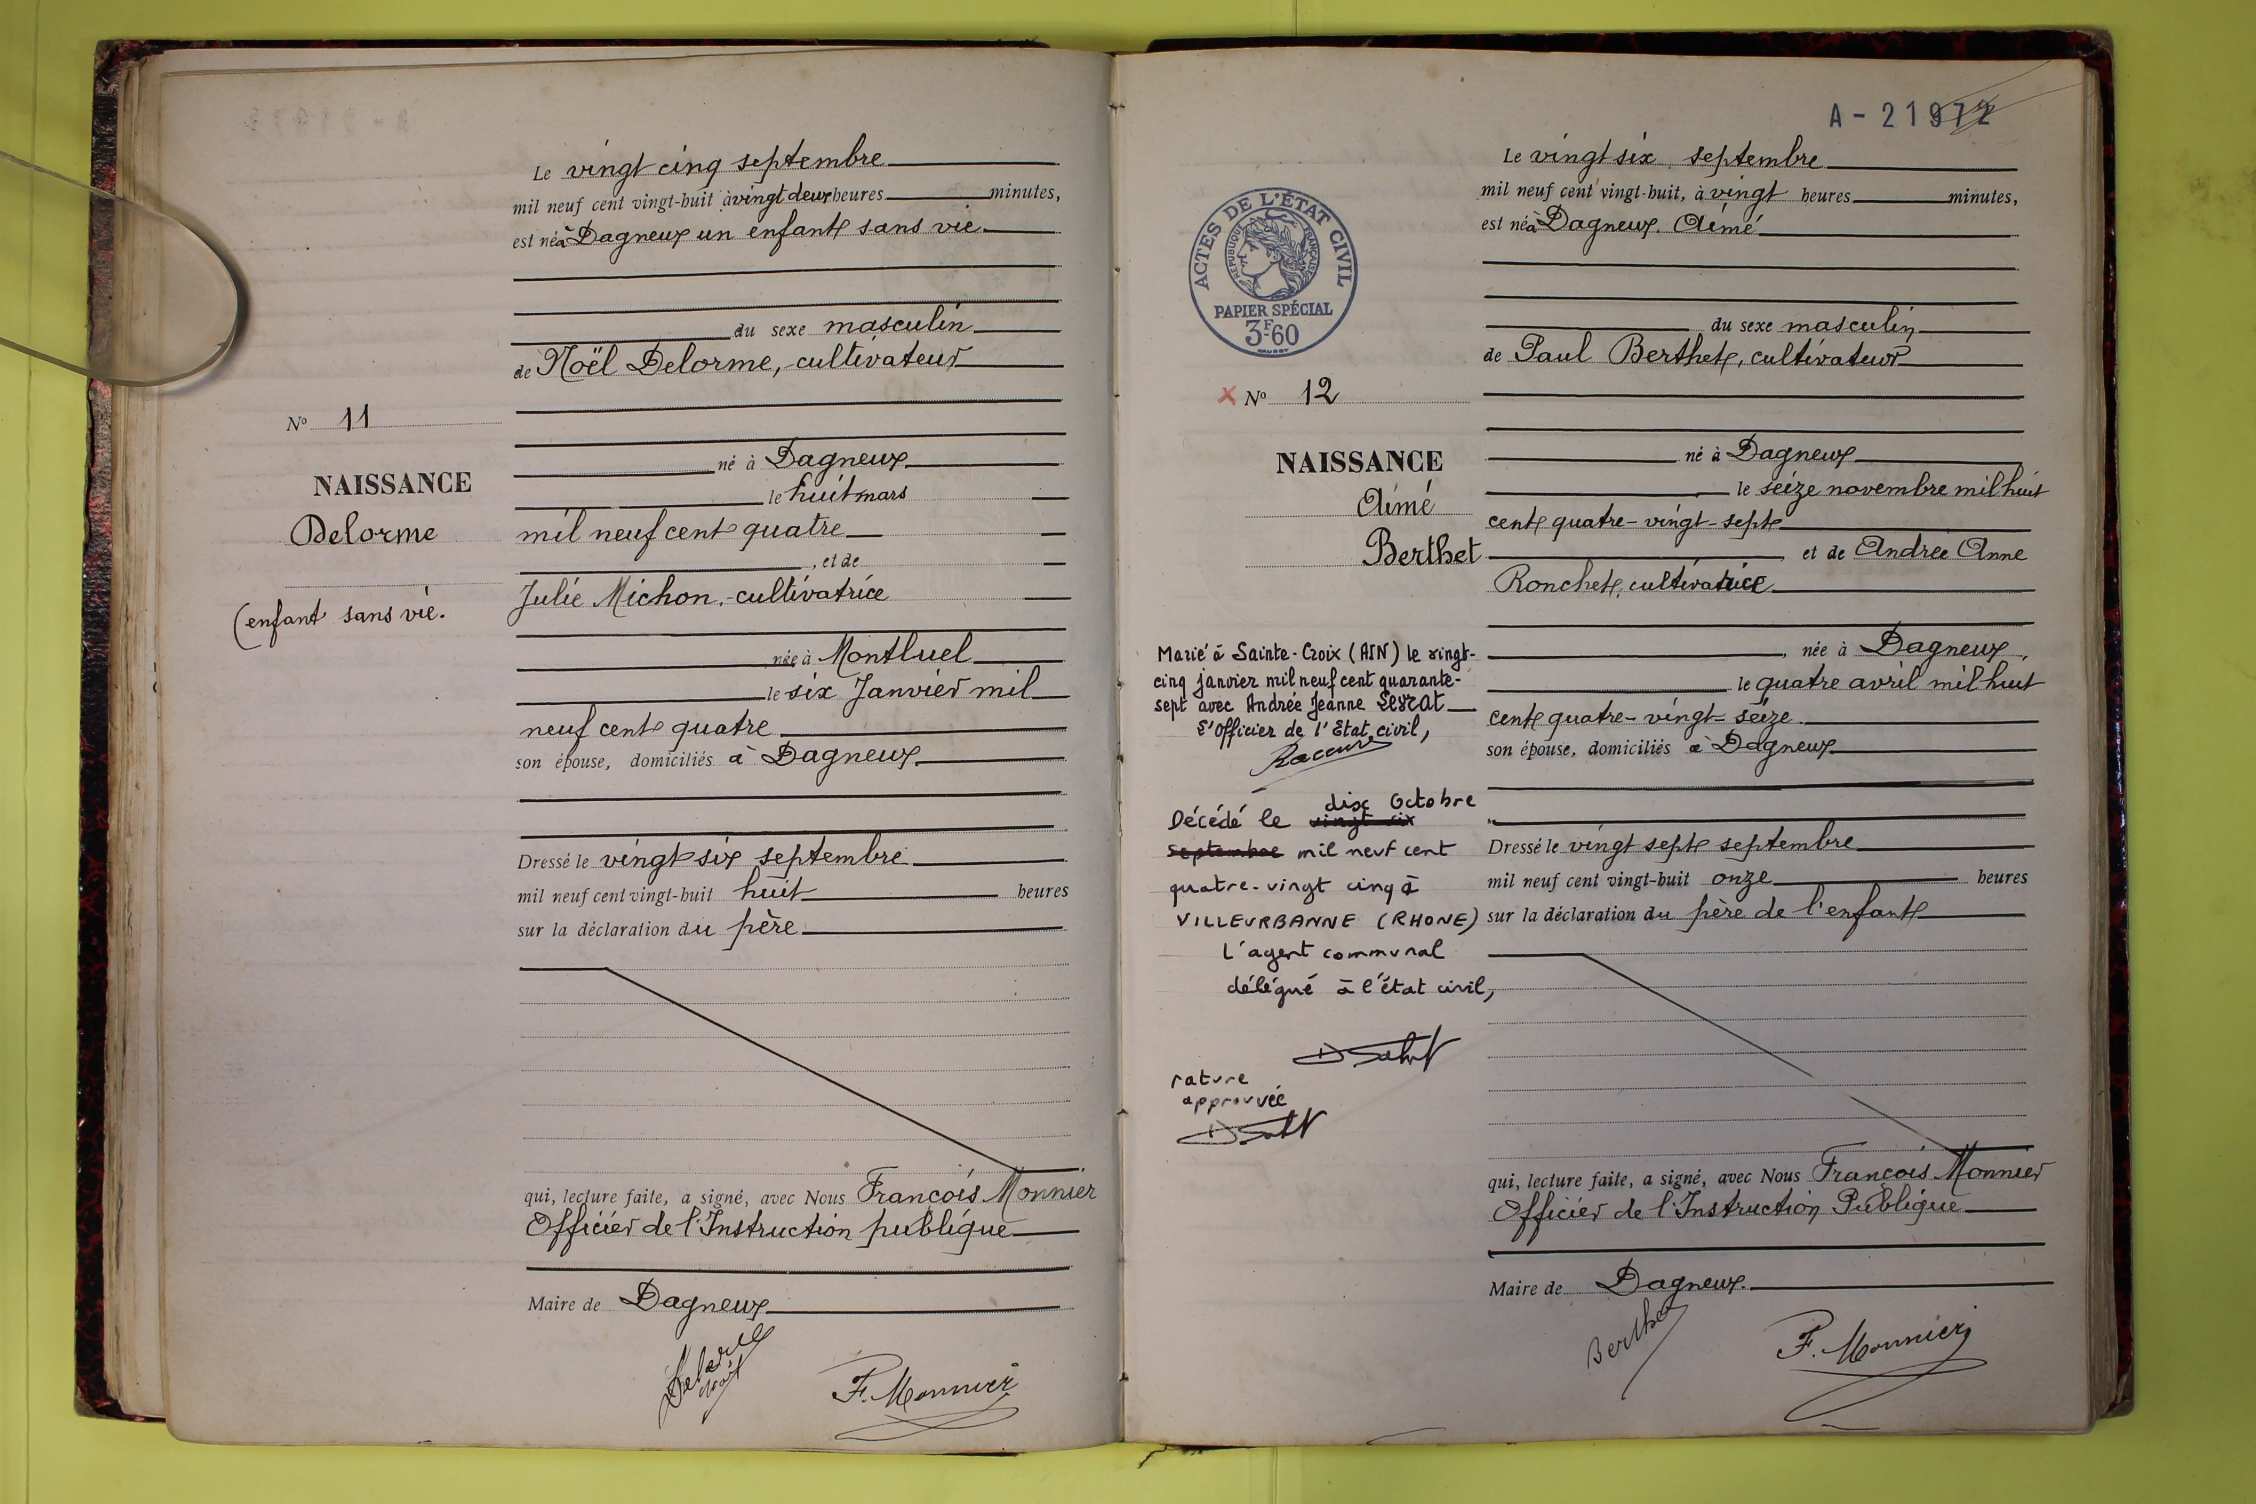 Le vingt cinq septembre
mil neuf cent vingt-huit à vingt deux heures minutes,
est né à Dagneux un enfant sans vie
du sexe masculin
de Noël Delorme, cultivateur
N° 11
né à Dagneux
NAISSANCE
le huit mars
Delorme
mil neuf cent quatre
, et de
Julie Michon, cultivatrice
(enfant sans vie.
née à Montluel
le six Janvier mil
neuf cent quatre
son épouse, domiciliés à Dagneux
Dressé le vingt six septembre
mil neuf cent vingt-huit huit heures
sur la déclaration du père
qui, lecture faite, a signé, avec Nous François Monnier
Officier de l'Instruction publique
Maire de Dagneux
F. Monnier
A - 21972
Le vingt six septembre
mil neuf cent vingt-huit, à vingt heures minutes,
est né à Dagneux. Aimé
ACTES DE L'ÉTAT CIVIL
RÉPUBLIQUE FRANÇAISE
PAPIER SPÉCIAL
3F60
du sexe masculin
de Paul Berthet, cultivateur
x N° 12
né à Dagneux
NAISSANCE
le seize novembre mil huit
Aimé
cent quatre-vingt-sept
Berthet
et de Andrée Anne
Ronchet, cultivatrice
née à Dagneux,
le quatre avril mil huit
cent quatre-vingt-seize
son épouse, domiciliés à Dagneux
Marié à Sainte-Croix (AIN) le vingt-
cinq janvier mil neuf cent quarante-
sept avec Andrée Jeanne
L'Officier de l'Etat civil,
dix Octobre
Décédé le vingt six
septembre mil neuf cent
quatre-vingt cinq à
VILLEURBANNE (RHONE)
L'agent communal
délégué à l'état civil,
rature
approuvée
Dressé le vingt sept septembre
mil neuf cent vingt-huit onze heures
sur la déclaration du père de l'enfant
qui, lecture faite, a signé, avec Nous François Monnier
Officier de l'Instruction Publique
Maire de Dagneux.
Berthet
F. Monnier